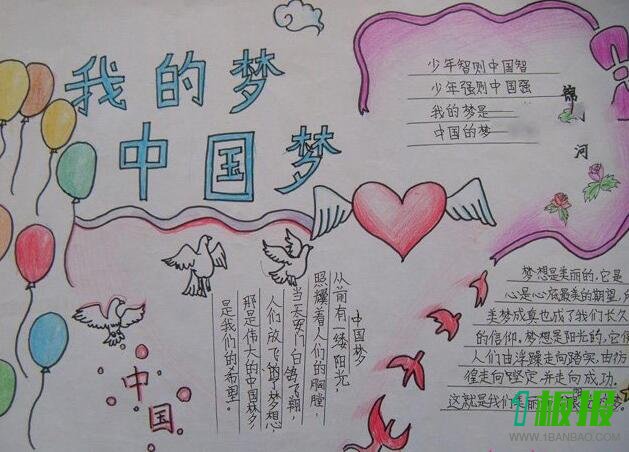 我的梦
中国梦
少年智则中国智
少年强则中国强
我的梦是
中国的梦
锦
河
中国梦
从前有一缕阳光,
照耀着人们的胸膛,
当天安门白鸽飞翔,
人们放飞的了梦想,
那是伟大的中国梦
是我们的希望。
中国
梦想是美丽的,它是
心是心底最美的期望,
美梦成真也成了我们长久
的信仰.梦想是阳光的,它使
人们由浮躁走向踏实,由彷
徨走向坚定,并走向成功.
这就是我们美丽
1板报
WWW.1BANBAO.COM